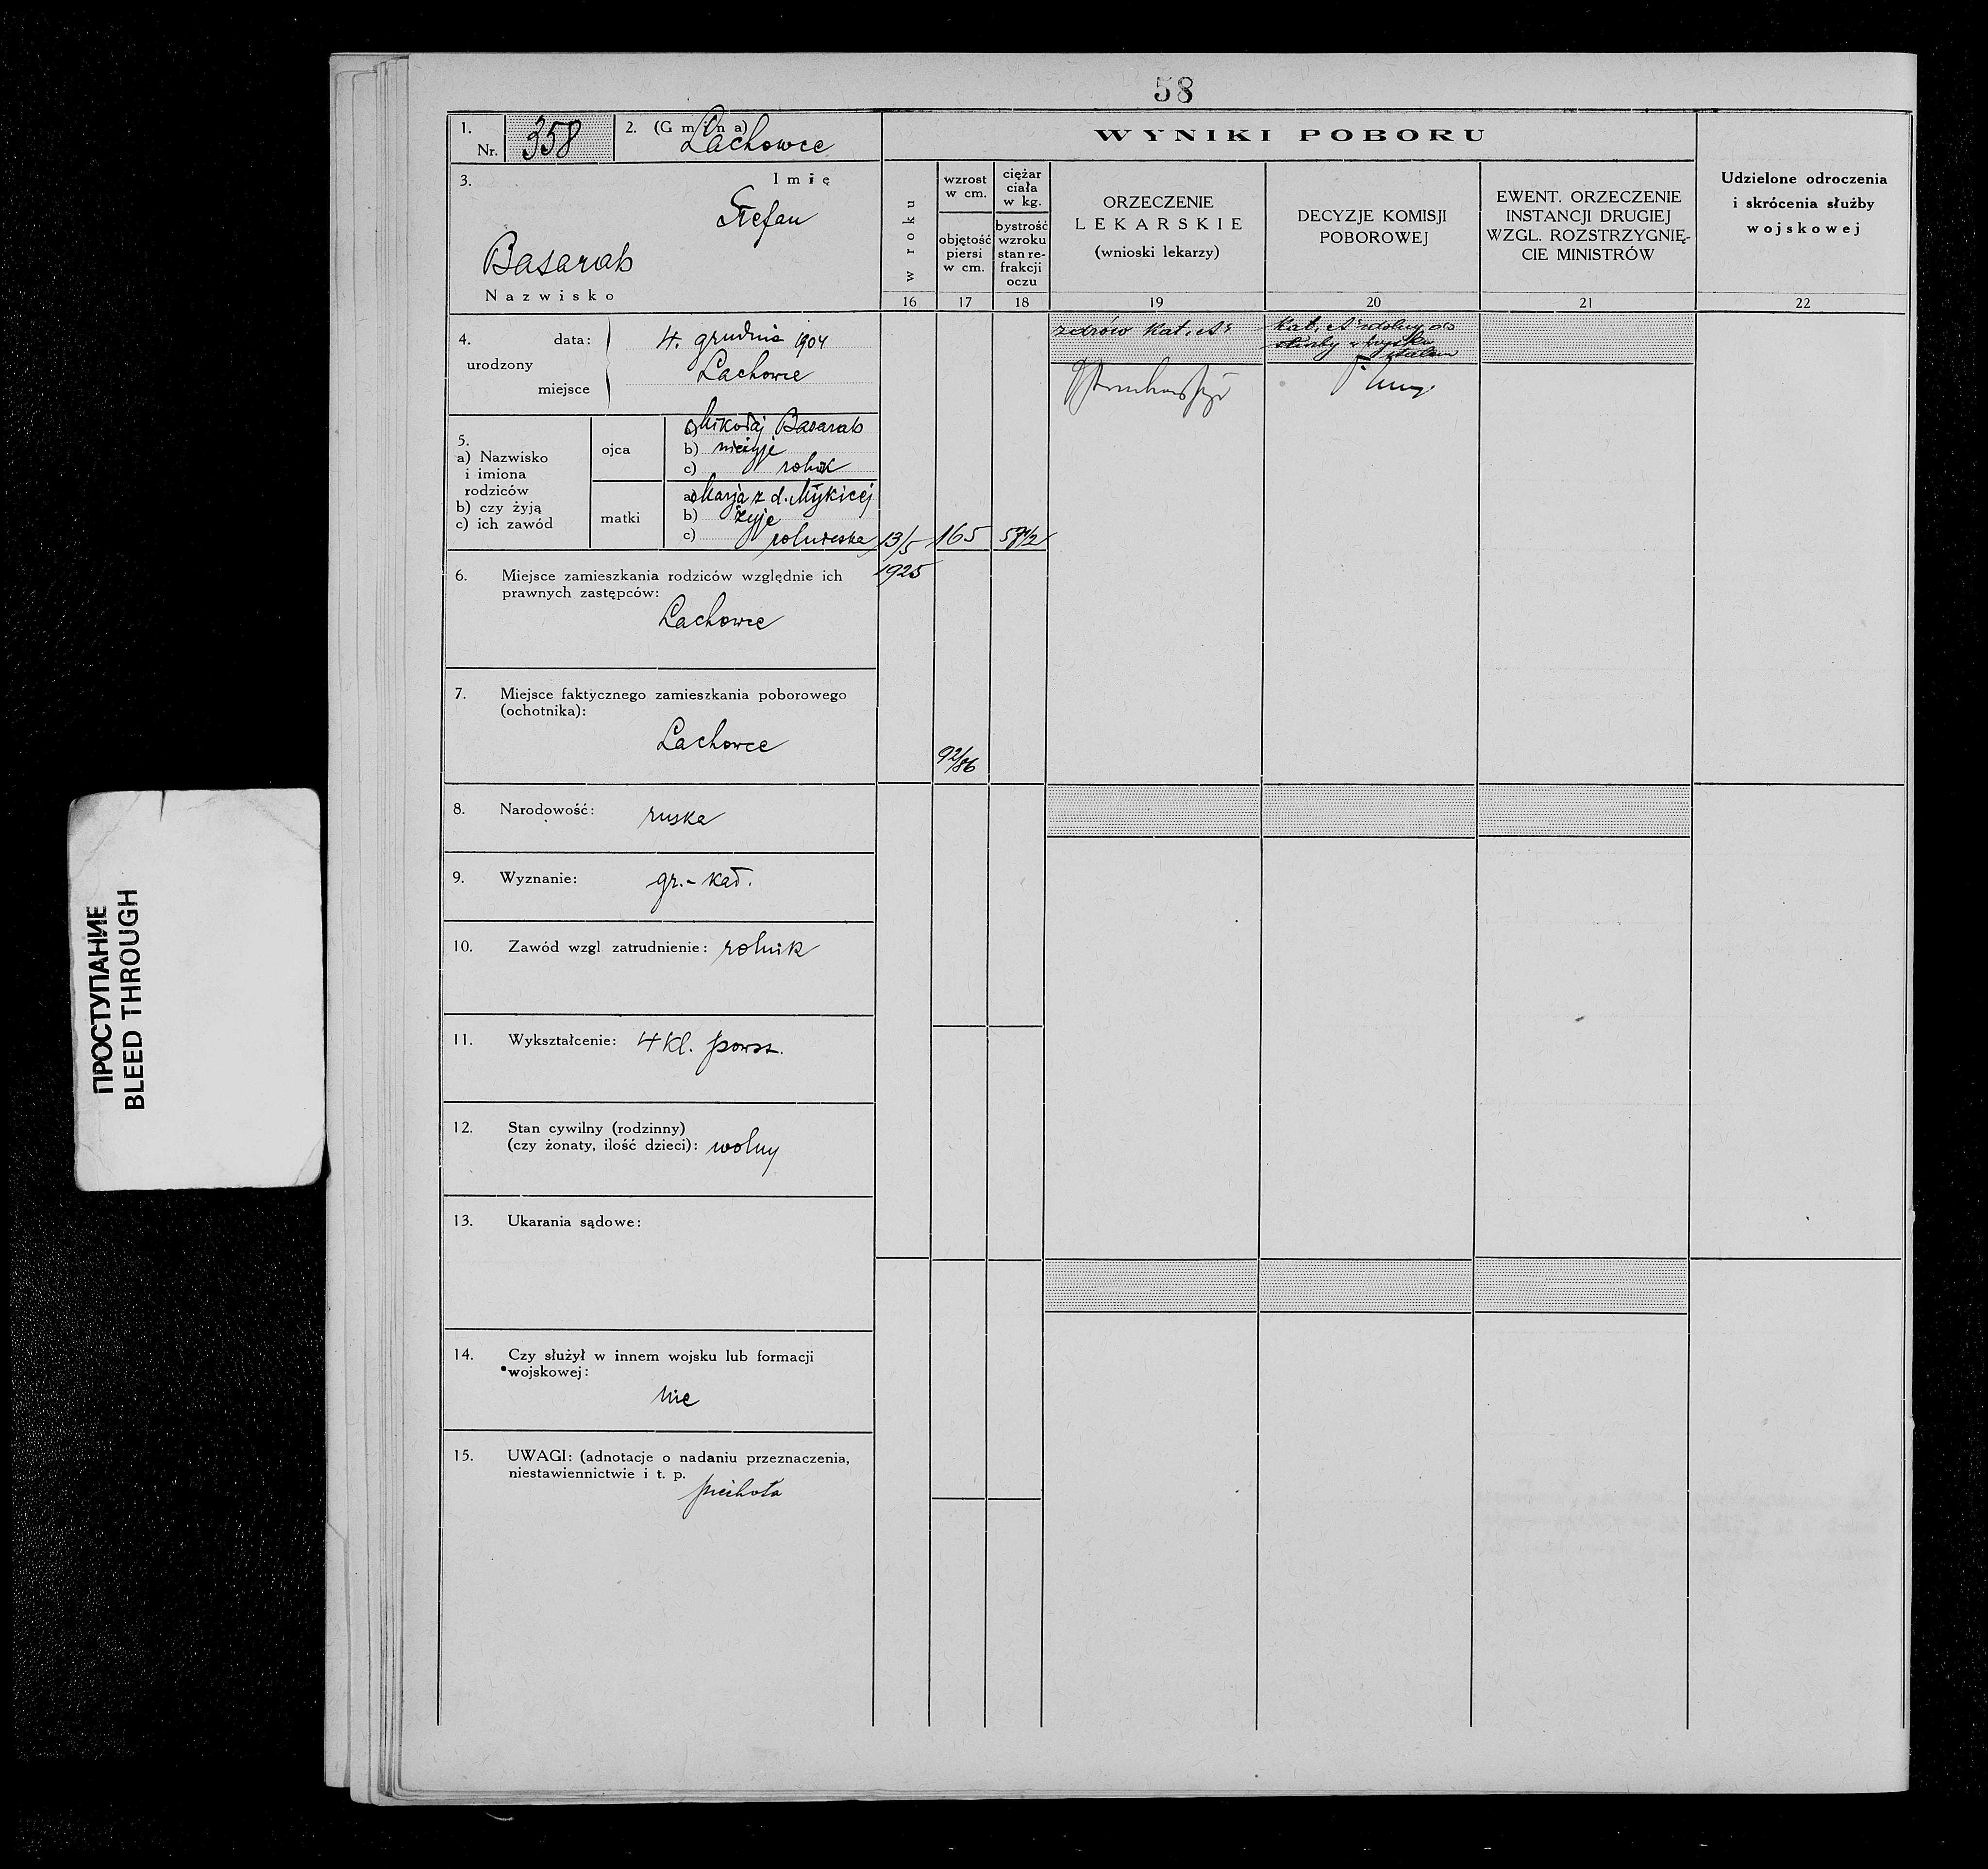 58
1.
Nr. 358
2. (Gmina)
Lachowce
3.
Imię
Stefan
Basarab
Nazwisko
4.
urodzony
data: 4. grudnia 1904
miejsce Lachowce
5.
a) Nazwisko
i imiona
rodziców
b) czy żyją
c) ich zawód
ojca
a) Mikołaj Basarab
b) nieżyje
c) rolnik
matki
a) Marja z d. Mykicej
b) żyje
c) rolniczka
6. Miejsce zamieszkania rodziców względnie ich
prawnych zastępców:
Lachowce
7. Miejsce faktycznego zamieszkania poborowego
(ochotnika):
Lachowce
8. Narodowość: ruska
9. Wyznanie: gr.-kat.
10. Zawód wzgl zatrudnienie: rolnik
11. Wykształcenie: 4 kl. powsz.
12. Stan cywilny (rodzinny)
(czy żonaty, ilość dzieci): wolny
13. Ukarania sądowe:
14. Czy służył w innem wojsku lub formacji
wojskowej:
nie
15. UWAGI: (adnotacje o nadaniu przeznaczenia,
niestawiennictwie i t. p.
piechota
WYNIKI POBORU
w roku
16
13/5
1925
wzrost
w cm.
objętość
piersi
w cm.
17
165
92/86
ciężar
ciała
w kg.
bystrość
wzroku
stan re-
frakcji
oczu
18
ORZECZENIE
LEKARSKIE
(wnioski lekarzy)
19
zdrów kat.
DECYZJE KOMISJI
POBOROWEJ
20
kat. zdolny do
służby
EWENT. ORZECZENIE
INSTANCJI DRUGIEJ
WZGL. ROZSTRZYGNIĘ-
CIE MINISTRÓW
21
Udzielone odroczenia
i skrócenia służby
wojskowej
22
ПРОСТУПАНИЕ
BLEED THROUGH